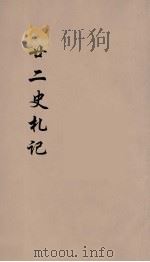 研狗
廿二史札记
mtoou.info